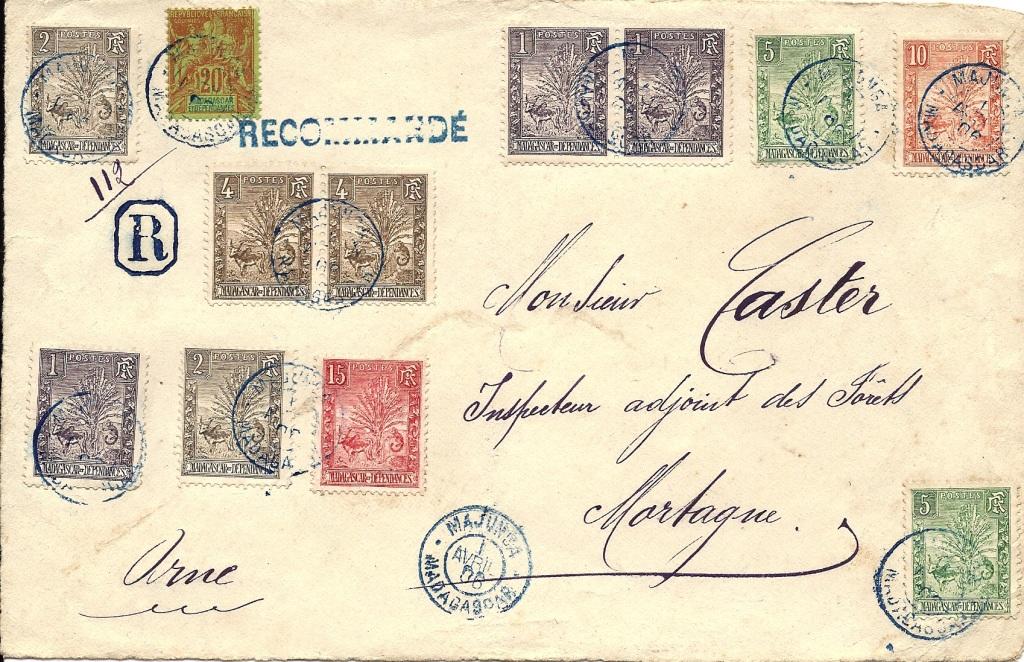 2 POSTES RF
MADAGASCAR ET DÉPENDANCES
REPUBLIQUE FRANÇAISE
COLONIES
20
MADAGASCAR
ET DÉPENDANCES
MADAGASCAR
RECOMMANDÉ
1 POSTES RF
MADAGASCAR ET DÉPENDANCES
1 POSTES RF
MADAGASCAR ET DÉPENDANCES
5 POSTES RF
MADAGASCAR ET DÉPENDANCES
10 POSTES RF
MADAGASCAR ET DÉPENDANCES
MAJUNGA
MADAGASCAR
112
R
4 POSTES RF
MADAGASCAR ET DÉPENDANCES
4 POSTES RF
MADAGASCAR ET DÉPENDANCES
Monsieur Caster
Inspecteur adjoint des Forêts
Mortagne.
Orne
1 POSTES RF
MADAGASCAR ET DÉPENDANCES
2 POSTES RF
MADAGASCAR ET DÉPENDANCES
15 POSTES RF
MADAGASCAR ET DÉPENDANCES
MAJUNGA
1
AVRIL
06
MADAGASCAR
5 POSTES RF
MADAGASCAR ET DÉPENDANCES
MADAGASCAR